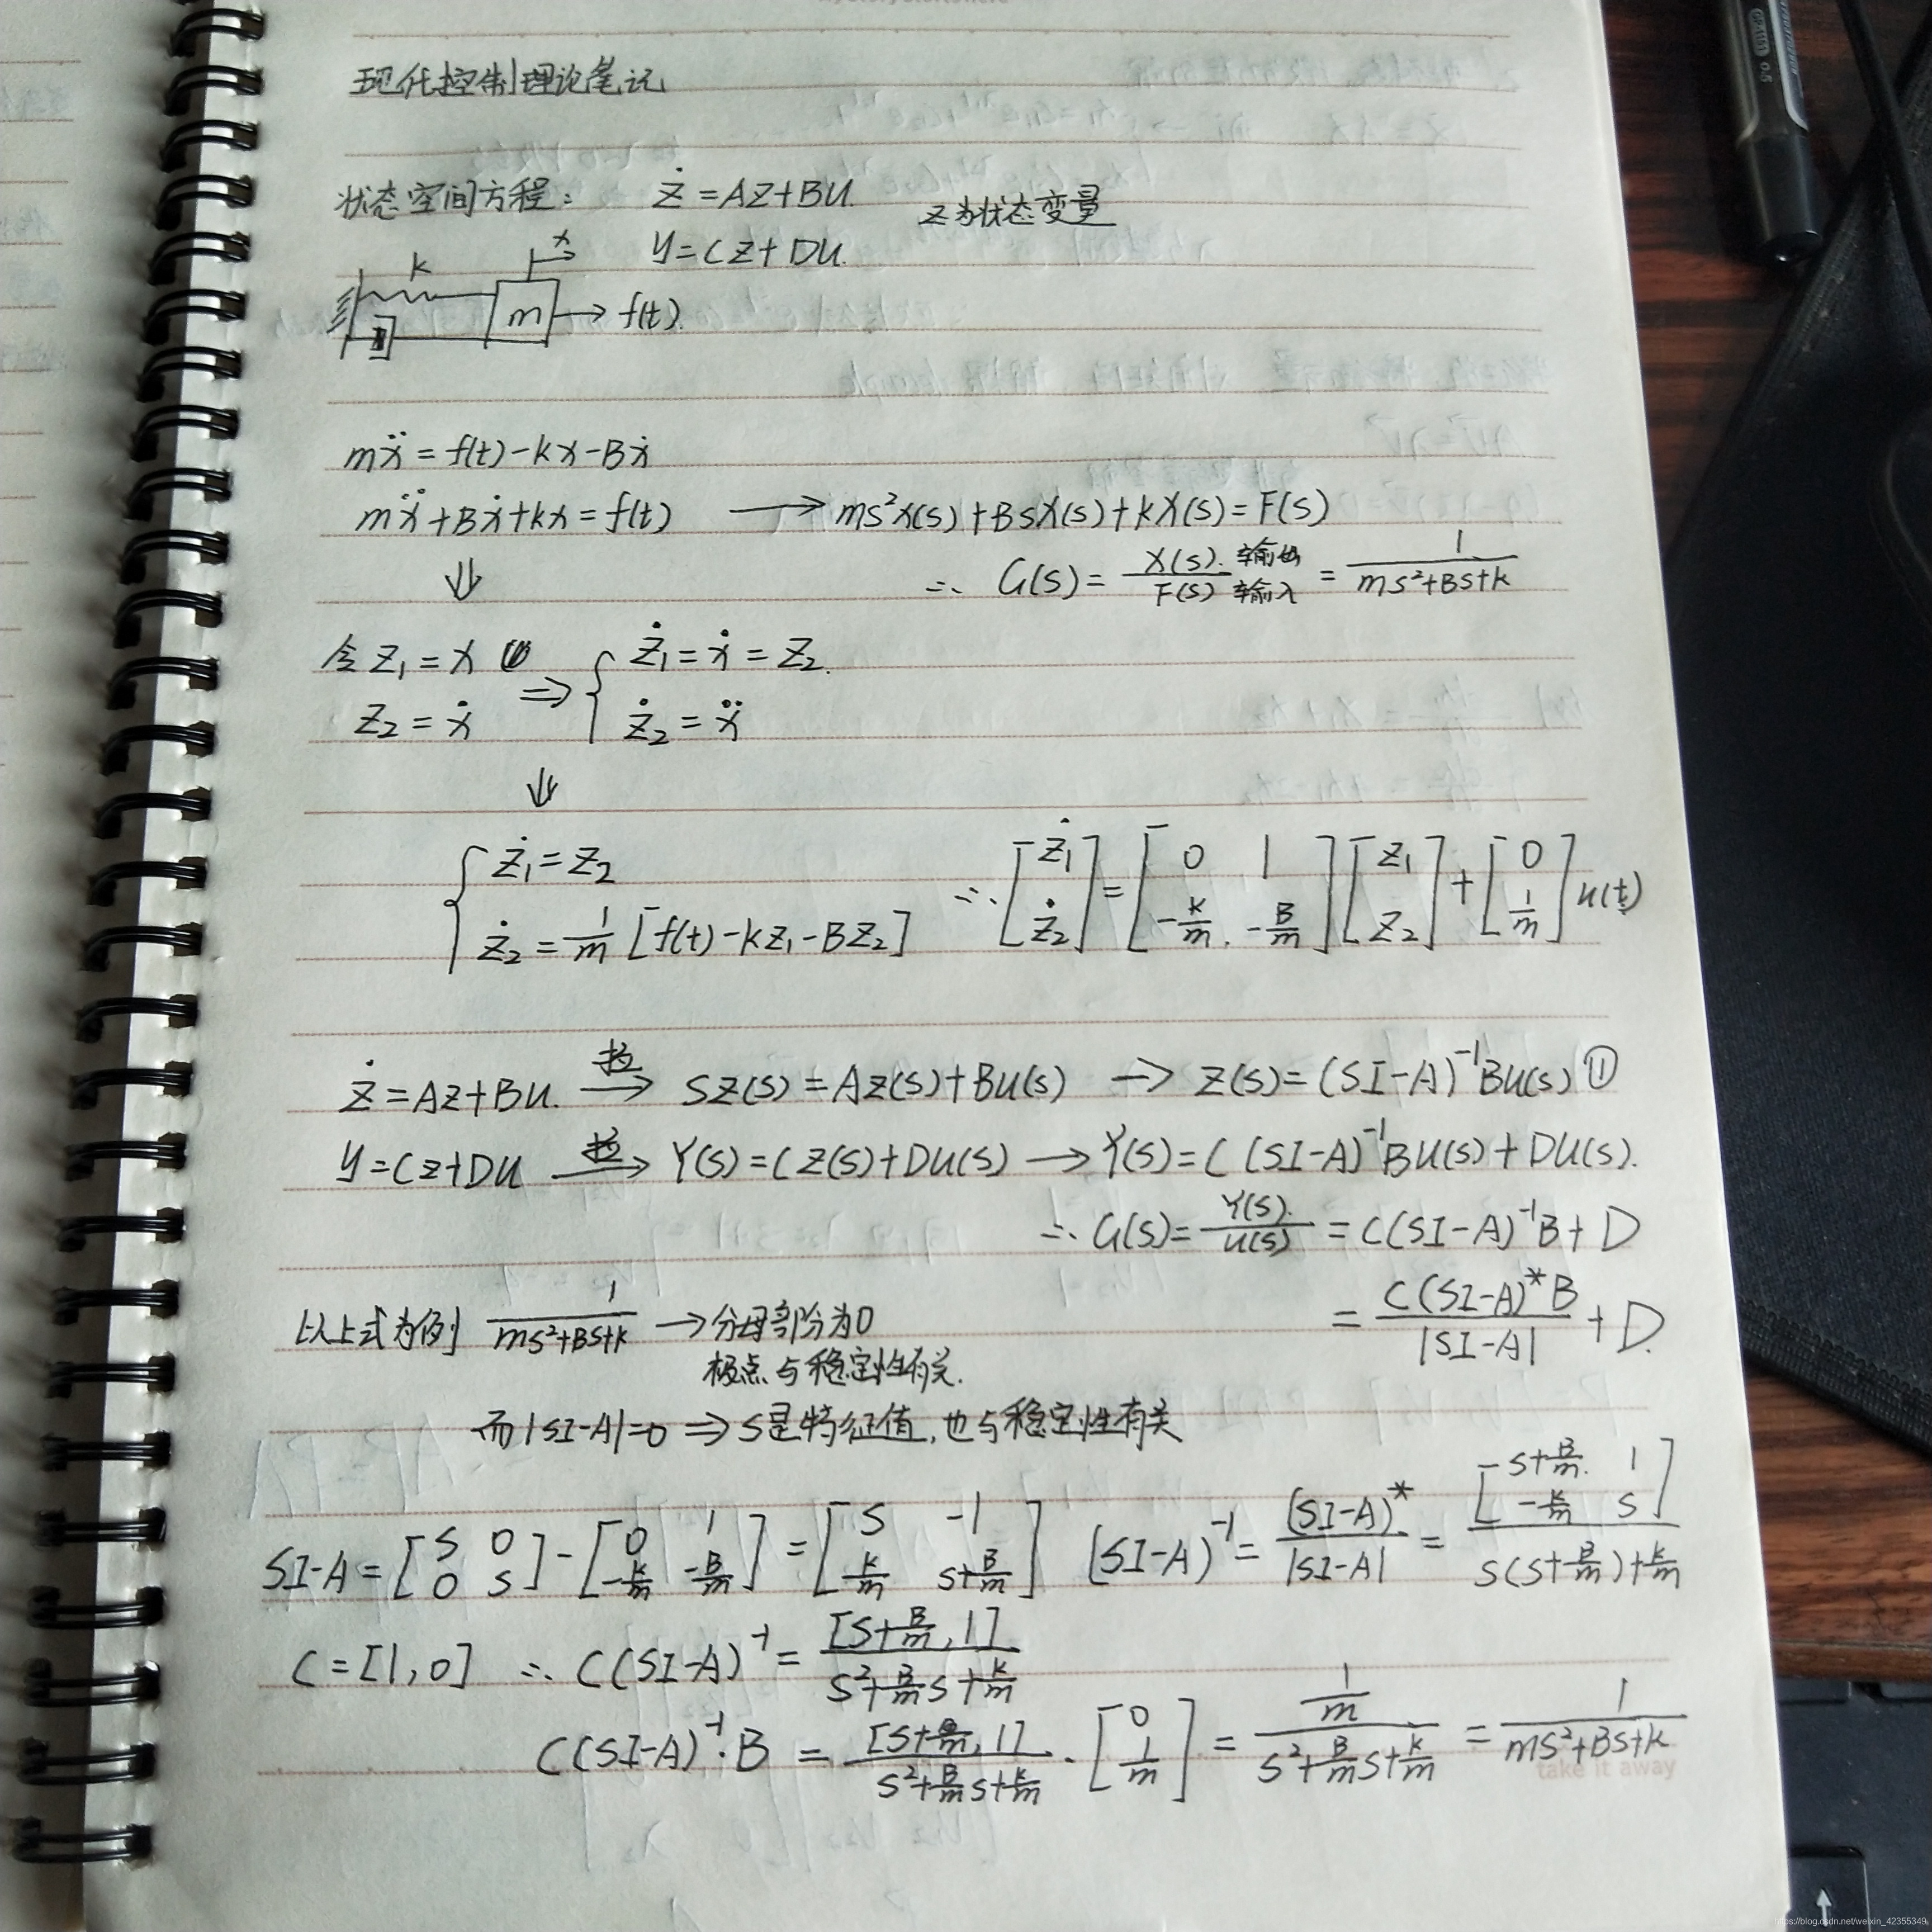 现代控制理论笔记
状态空间方程： ż = AZ+BU. z为状态变量
y = CZ + DU.
k x
m → f(t).
mẍ = f(t) - kx - Bẋ
mẍ + Bẋ + kx = f(t) → ms²X(s) + BsX(s) + kX(s) = F(s)
⇓ ∴ G(s) = X(s). 输出 / F(s) 输入 = 1 / (ms²+Bs+k)
令 Z₁ = x ⇒ { Ż₁ = ẋ = Z₂.
Z₂ = ẋ ż₂ = ẍ
⇓
{ ż₁ = z₂ ∴ [ż₁; ż₂] = [0 1; -k/m . -B/m] [z₁; z₂] + [0; 1/m] u(t)
ż₂ = 1/m [f(t) - kz₁ - Bz₂]
ż = AZ+BU. 拉→ SZ(s) = AZ(s) + BU(s) → Z(s) = (SI-A)⁻¹BU(s) ①
y = CZ+DU 拉→ Y(s) = CZ(s) + DU(s) → Y(s) = C(SI-A)⁻¹BU(s) + DU(s).
∴ G(s) = Y(s). / U(s) = C(SI-A)⁻¹B + D
= C(SI-A)*B / |SI-A| + D.
以上式为例 1 / (ms²+Bs+k) → 分母部分为0
极点与稳定性有关.
而|SI-A|=0 ⇒ S是特征值, 也与稳定性有关
SI-A = [S 0; 0 S] - [0 1; -k/m -B/m] = [S -1; k/m S+B/m] (SI-A)⁻¹ = (SI-A)* / |SI-A| = [S+B/m. 1; -k/m S] / (S(S+B/m)+k/m)
C = [1, 0] ∴ C(SI-A)⁻¹ = [S+B/m, 1] / (S²+B/m S+k/m)
C(SI-A)⁻¹·B = [S+B/m, 1] / (S²+B/m S+k/m) · [0; 1/m] = (1/m) / (S²+B/m S+k/m) = 1 / (mS²+Bs+k)
take it away
https://blog.csdn.net/weixin_42355349